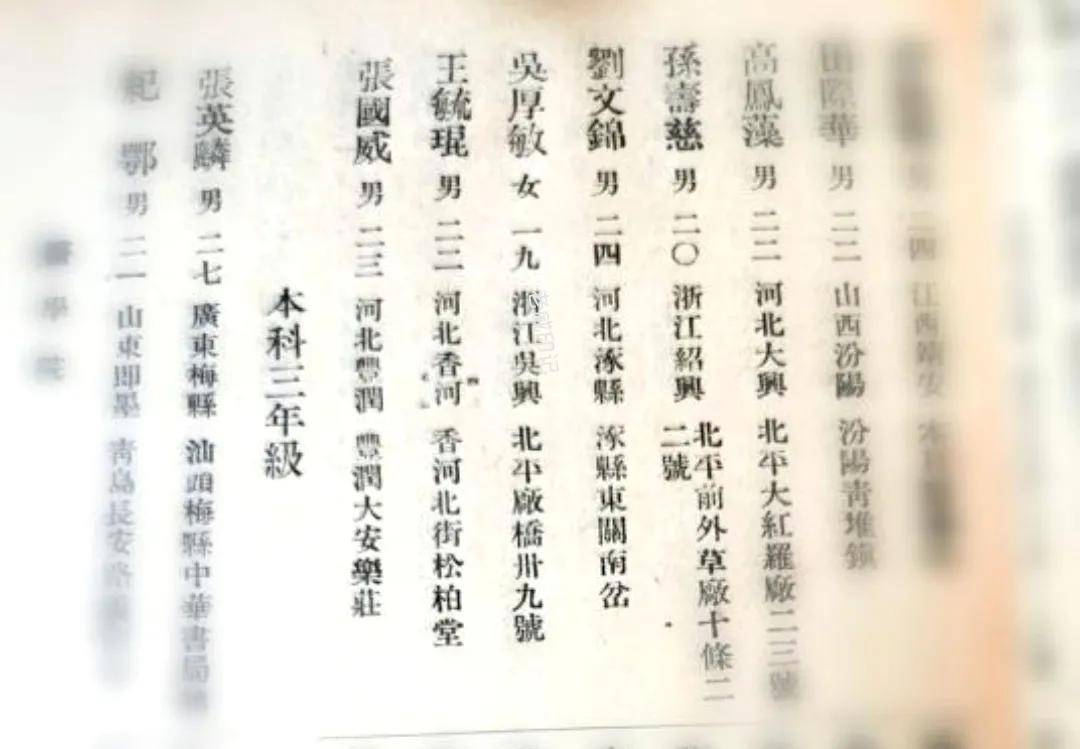 華 男 二二 山西汾陽 汾陽青堆鎮
高鳳藻 男 二二 河北大興 北平大紅羅廠二三號
孫壽慈 男 二〇 浙江紹興 北平前外草廠十條二
二號
劉文錦 男 二四 河北涿縣 涿縣東關南岔
吳厚敏 女 一九 浙江吳興 北平廠橋卅九號
王毓琨 男 二二 河北香河 香河北街松柏堂
張國威 男 二三 河北豐潤 豐潤大安樂莊
本科三年級
張英麟 男 二七 廣東梅縣 汕頭梅縣中華書局
紀鄂 男 二一 山東即墨 青島長安路
學院